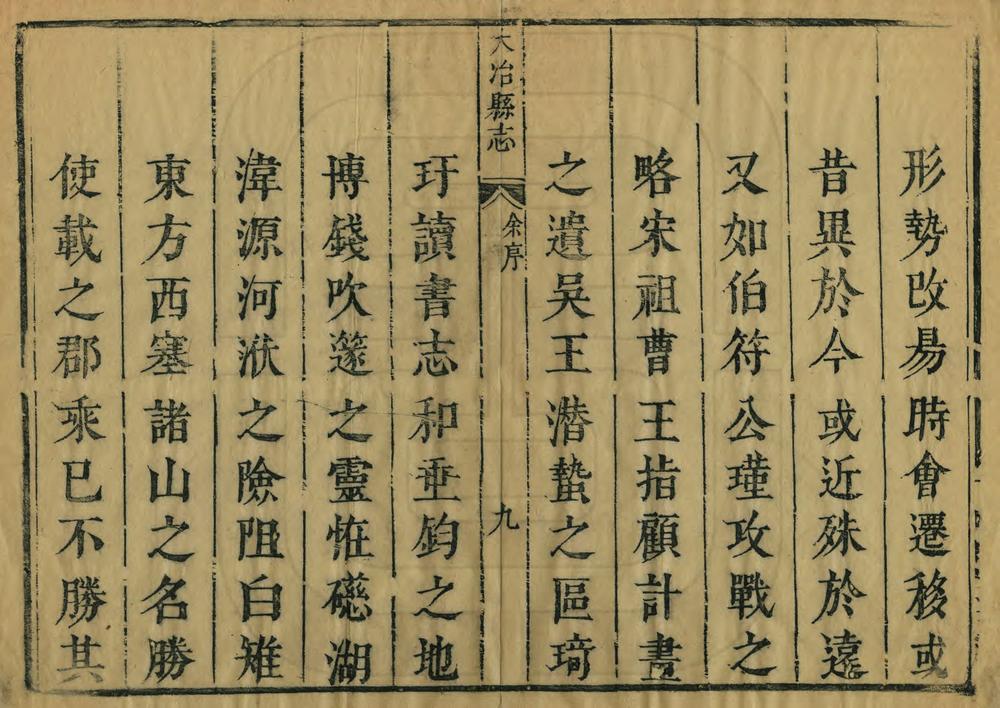 形勢改易時會遷移或
昔異於今或近殊於遠
又如伯符公瑾攻戰之
略宋祖曹王指顧計畫
之遺吳王潛蟄之區琦
大冶縣志
余序
九
玗讀書志和垂釣之地
博錢吹篴之靈恠磁湖
湋源河洑之險阻白雉
東方西塞諸山之名勝
使載之郡乘已不勝其